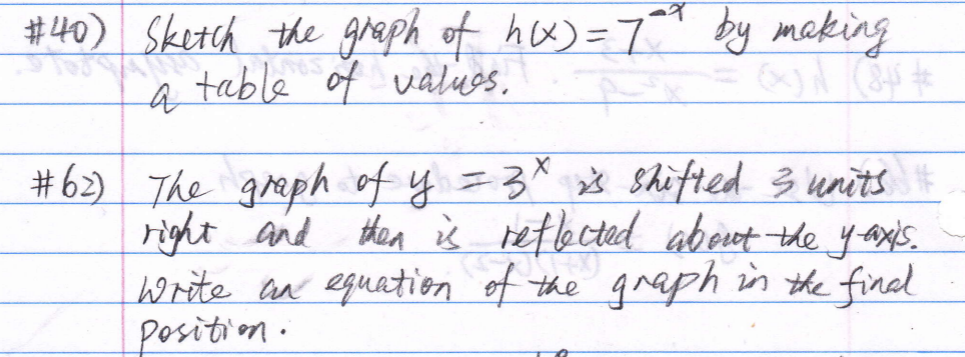 #40) Sketch the graph of h(x) = 7^-x by making
a table of values.
#62) The graph of y = 3^x is shifted 3 units
right and then is reflected about the y-axis.
Write an equation of the graph in the final
position.